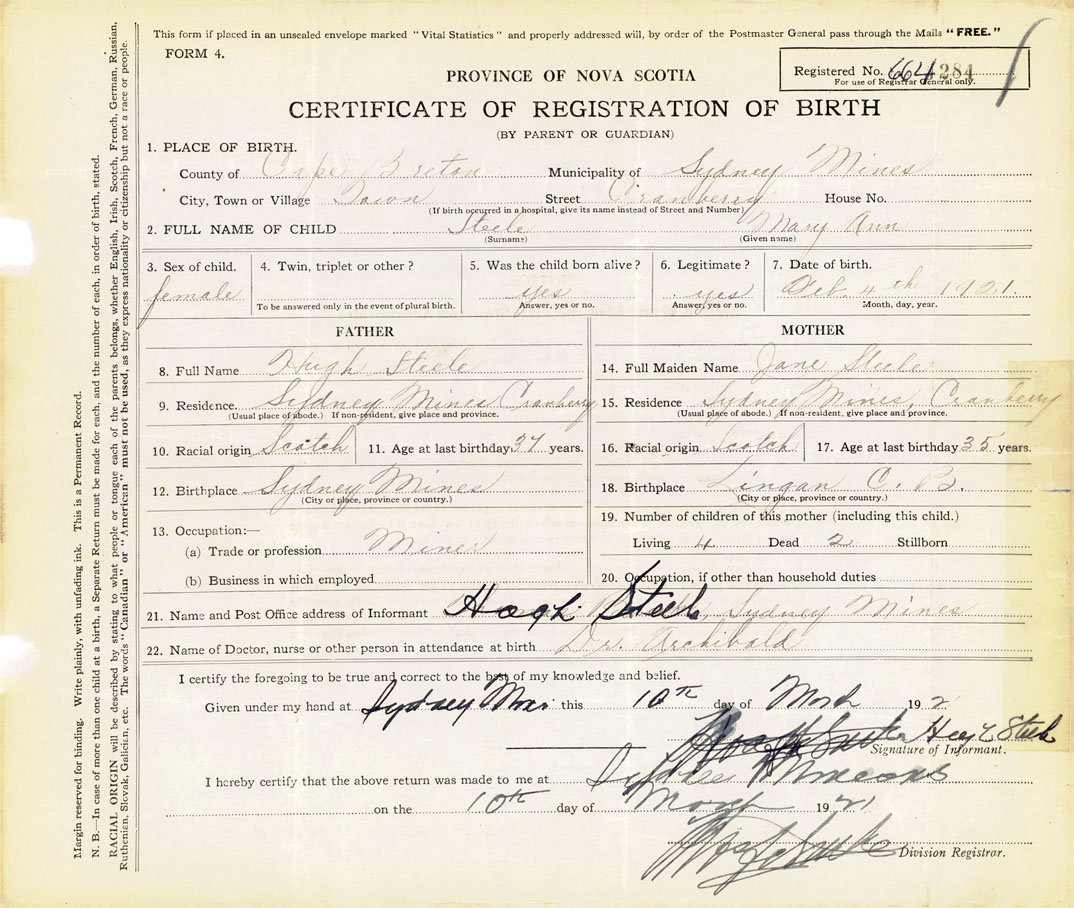 This form if placed in an unsealed envelope marked "Vital Statistics" and properly addressed will, by order of the Postmaster General pass through the Mails "FREE."
FORM 4.
Registered No. 664 284
For use of Registrar General only.
PROVINCE OF NOVA SCOTIA
CERTIFICATE OF REGISTRATION OF BIRTH
(BY PARENT OR GUARDIAN)
1. PLACE OF BIRTH.
County of Cape Breton Municipality of Sydney Mines
City, Town or Village Town Street Cranberry House No.
(If birth occurred in a hospital, give its name instead of Street and Number)
2. FULL NAME OF CHILD Steele Mary Ann
(Surname) (Given name)
3. Sex of child. 4. Twin, triplet or other? 5. Was the child born alive? 6. Legitimate? 7. Date of birth.
female yes yes 4th 1921.
To be answered only in the event of plural birth. Answer, yes or no. Answer, yes or no. Month, day, year.
FATHER
8. Full Name Hugh Steele
9. Residence. Sydney Mines Cranberry
(Usual place of abode.) If non-resident, give place and province.
10. Racial origin Scotch 11. Age at last birthday 37 years.
12. Birthplace Sydney Mines
(City or place, province or country.)
13. Occupation:—
(a) Trade or profession Miner
(b) Business in which employed
MOTHER
14. Full Maiden Name Jane Steele
15. Residence Sydney Mines, Cranberry
(Usual place of abode.) If non-resident, give place and province.
16. Racial origin Scotch 17. Age at last birthday 35 years.
18. Birthplace Lingan C. B.
(City or place, province or country.)
19. Number of children of this mother (including this child.)
Living 4 Dead 2 Stillborn
20. Occupation, if other than household duties
21. Name and Post Office address of Informant Hugh Steele, Sydney Mines
22. Name of Doctor, nurse or other person in attendance at birth Dr. Archibald
I certify the foregoing to be true and correct to the best of my knowledge and belief.
Given under my hand at Sydney this 10th day of 192
Steele
Signature of Informant.
I hereby certify that the above return was made to me at
on the 10th day of March 1921
Division Registrar.
Margin reserved for binding. Write plainly, with unfading ink. This is a Permanent Record.
N. B.—In case of more than one child at a birth, a Separate Return must be made for each, and the number of each, in order of birth, stated.
RACIAL ORIGIN will be described by stating to what people or tongue each of the parents belongs, whether English, Irish, Scotch, French, German, Russian,
Ruthenian, Slovak, Galician, etc. The words "Canadian" or "American" must not be used, as they express nationality or citizenship but not a race or people.